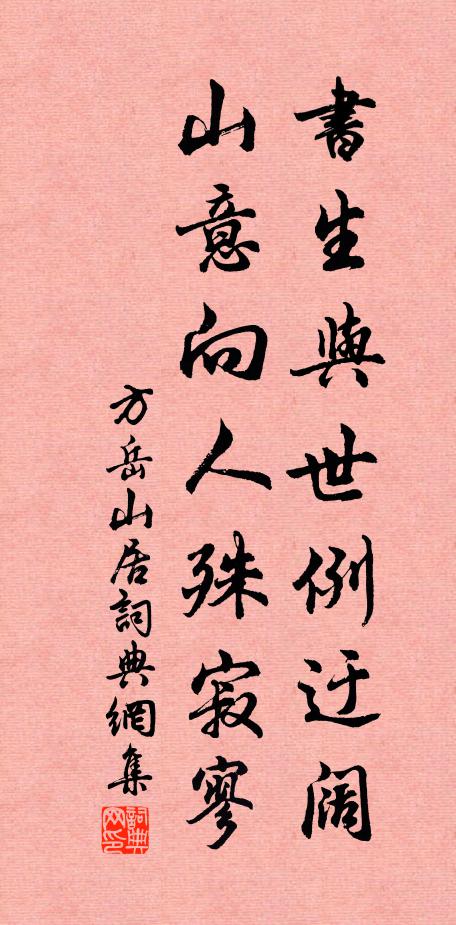 書生與世例迂闊
山意向人殊寂寥
方岳山居詞典網集
詞典
网印